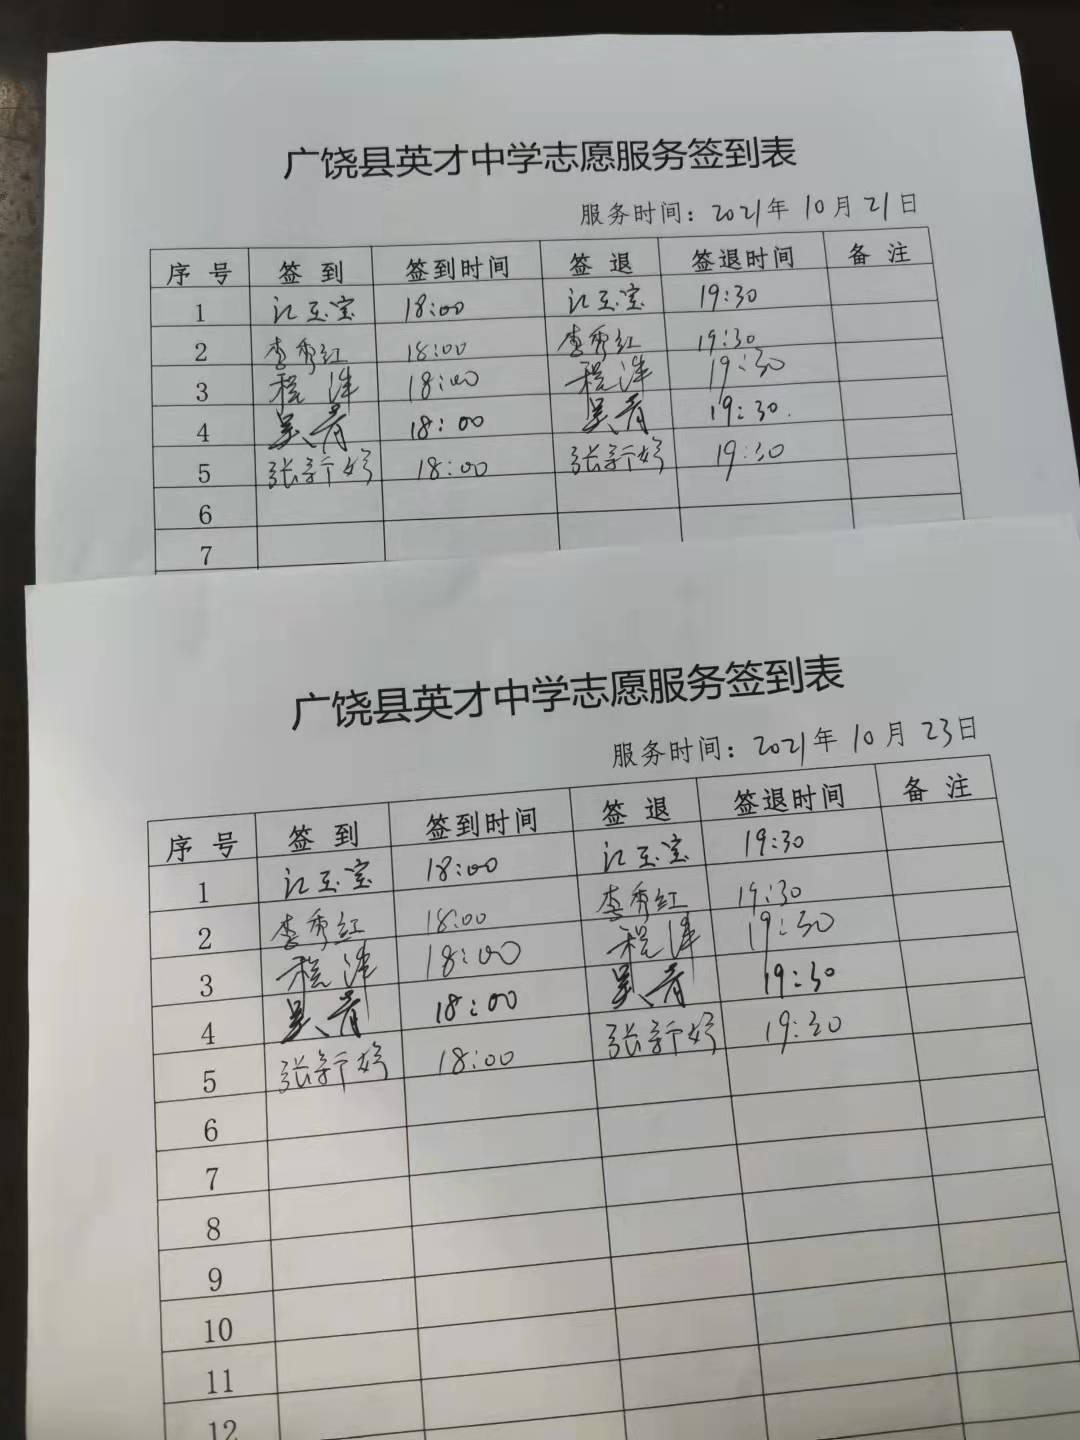 广饶县英才中学志愿服务签到表
服务时间：2021年10月21日
序号 签到 签到时间 签退 签退时间 备注
1 江玉宝 18:00 江玉宝 19:30
2 李秀红 18:00 李秀红 19:30
3 程洋 18:00 程洋 19:30
4 吴青 18:00 吴青 19:30.
5 张新婷 18:00 张新婷 19:30
6
7
广饶县英才中学志愿服务签到表
服务时间：2021年10月23日
序号 签到 签到时间 签退 签退时间 备注
1 江玉宝 18:00 江玉宝 19:30
2 李秀红 18:00 李秀红 19:30
3 程洋 18:00 程洋 19:30
4 吴青 18:00 吴青 19:30
5 张新婷 18:00 张新婷 19:30
6
7
8
9
10
11
12